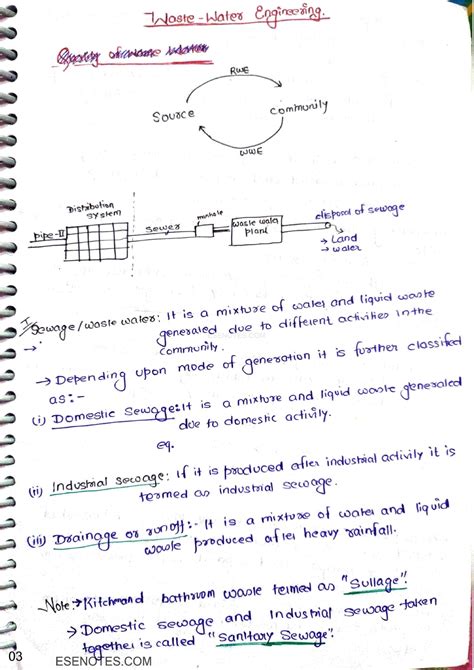 Waste-Water Engineering.
Quality of waste water
RWE
Source
Community
WWE
Distribution
system
pipe-II
sewer
manhole
waste water
plant
disposal of sewage
→ Land
→ water
I/Sewage/waste water: It is a mixture of water and liquid waste
→ generated due to different activities in the
community.
→ Depending upon mode of generation it is further classified
as:-
(i) Domestic Sewage: It is a mixture and liquid waste generated
due to domestic activity.
eq.
(ii) Industrial sewage: If it is produced after industrial activity it is
termed as industrial sewage.
(iii) Drainage or runoff:- It is a mixture of water and liquid
waste produced after heavy rainfall.
Note:→ Kitchen and bathroom waste termed as "Sullage".
→ Domestic sewage and Industrial sewage taken
together is called "Sanitary Sewage".
03
ESENOTES.COM